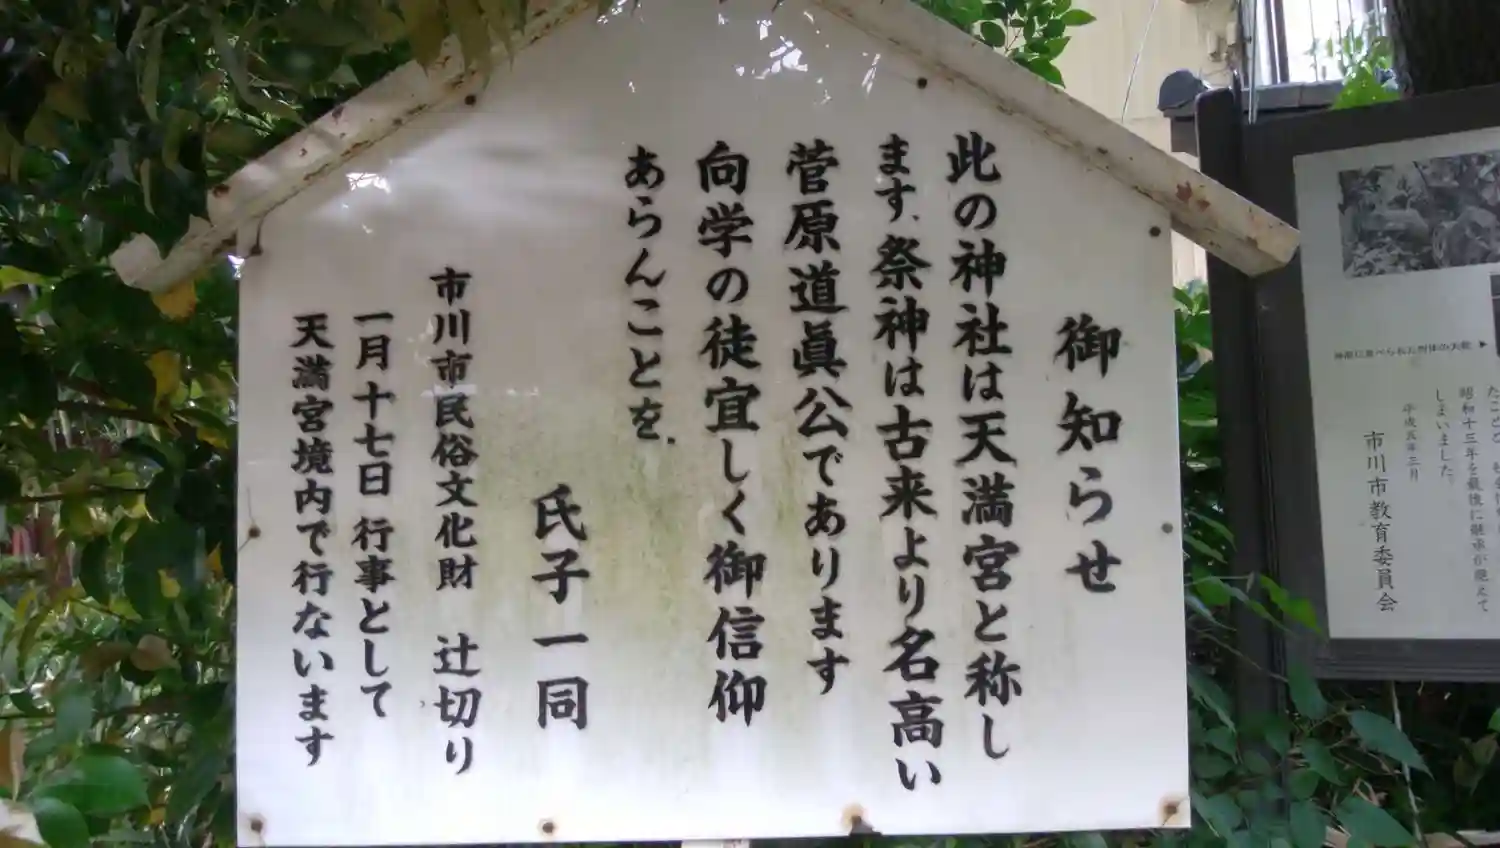 御知らせ
此の神社は天満宮と称し
ます、祭神は古来より名高い
菅原道眞公であります
向学の徒宜しく御信仰
あらんことを、
氏子一同
市川市民俗文化財　辻切り
一月十七日 行事として
天満宮境内で行ないます
昭和十三年を最後に継承が絶えて
しまいました。
平成五年三月
市川市教育委員会